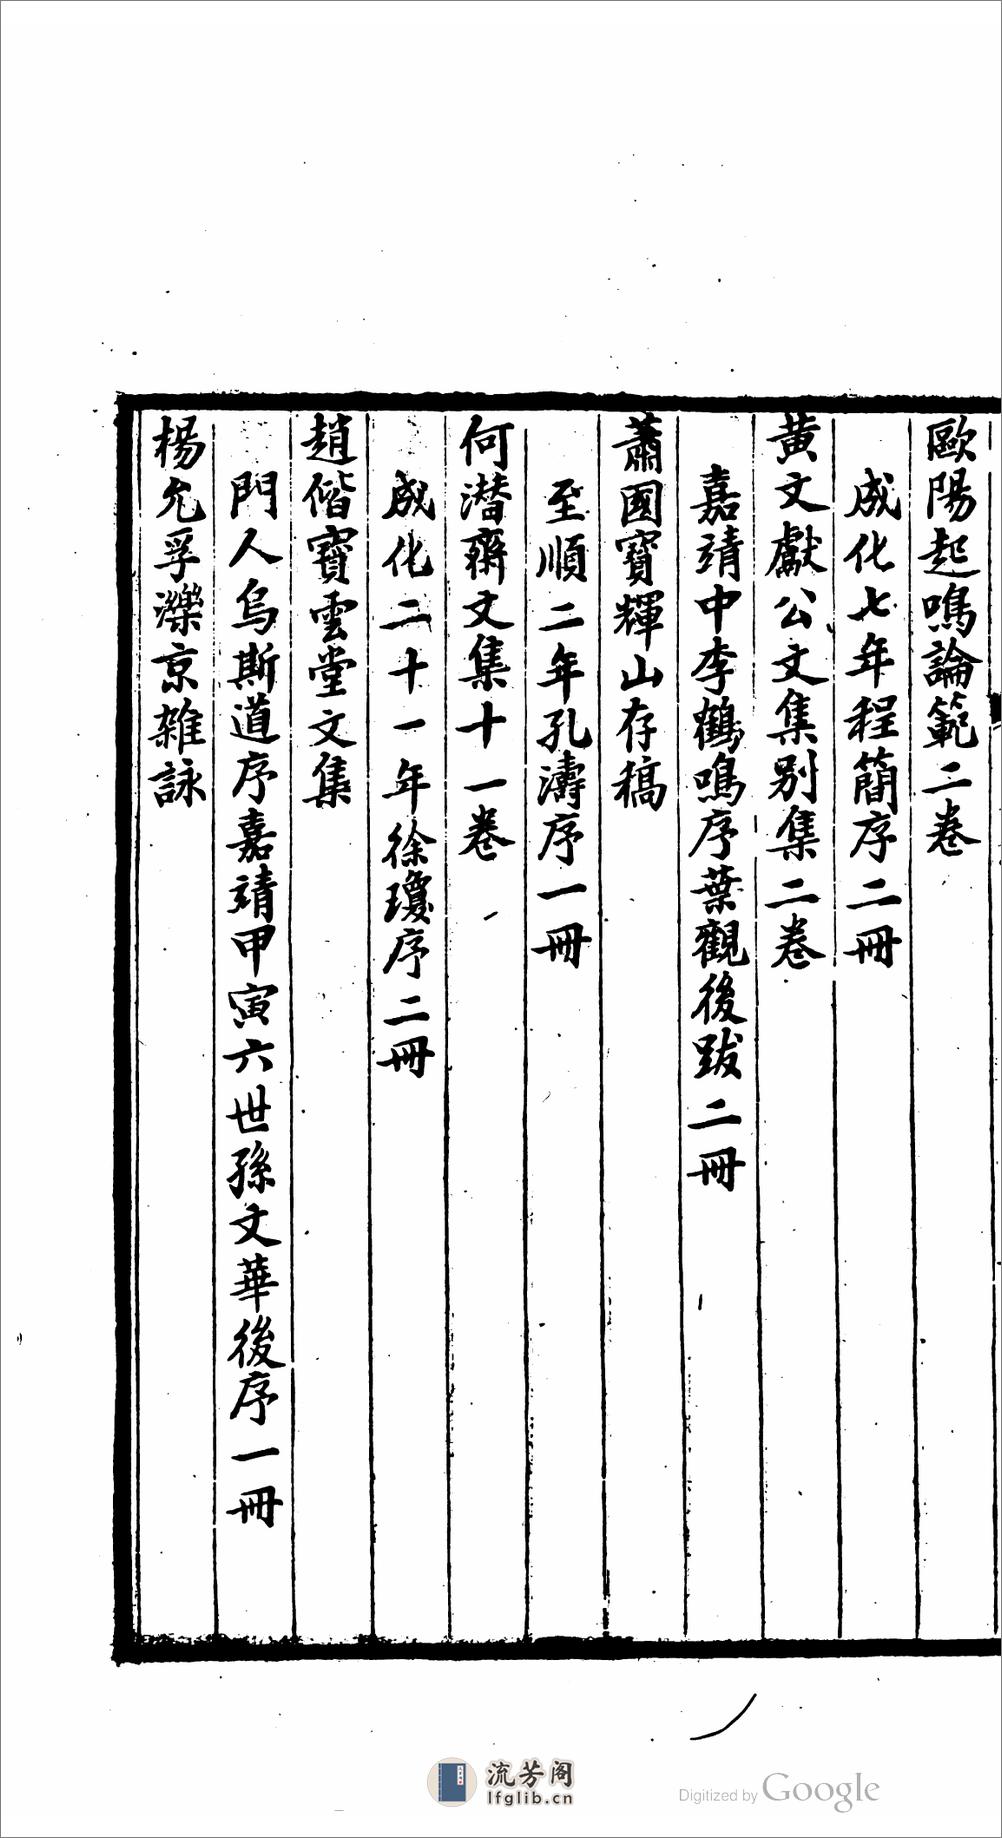 歐陽起鳴論範二卷
成化七年程簡序二冊
黃文獻公文集別集二卷
嘉靖中李鶴鳴序葉觀後跋二冊
蕭國寶輝山存稿
至順二年孔濤序一冊
何潛齋文集十一卷
成化二十一年徐瓊序二冊
趙偕寶雲堂文集
門人烏斯道序嘉靖甲寅六世孫文華後序一冊
楊允孚灤京雜詠
流芳阁
lfglib.cn
Digitized by Google